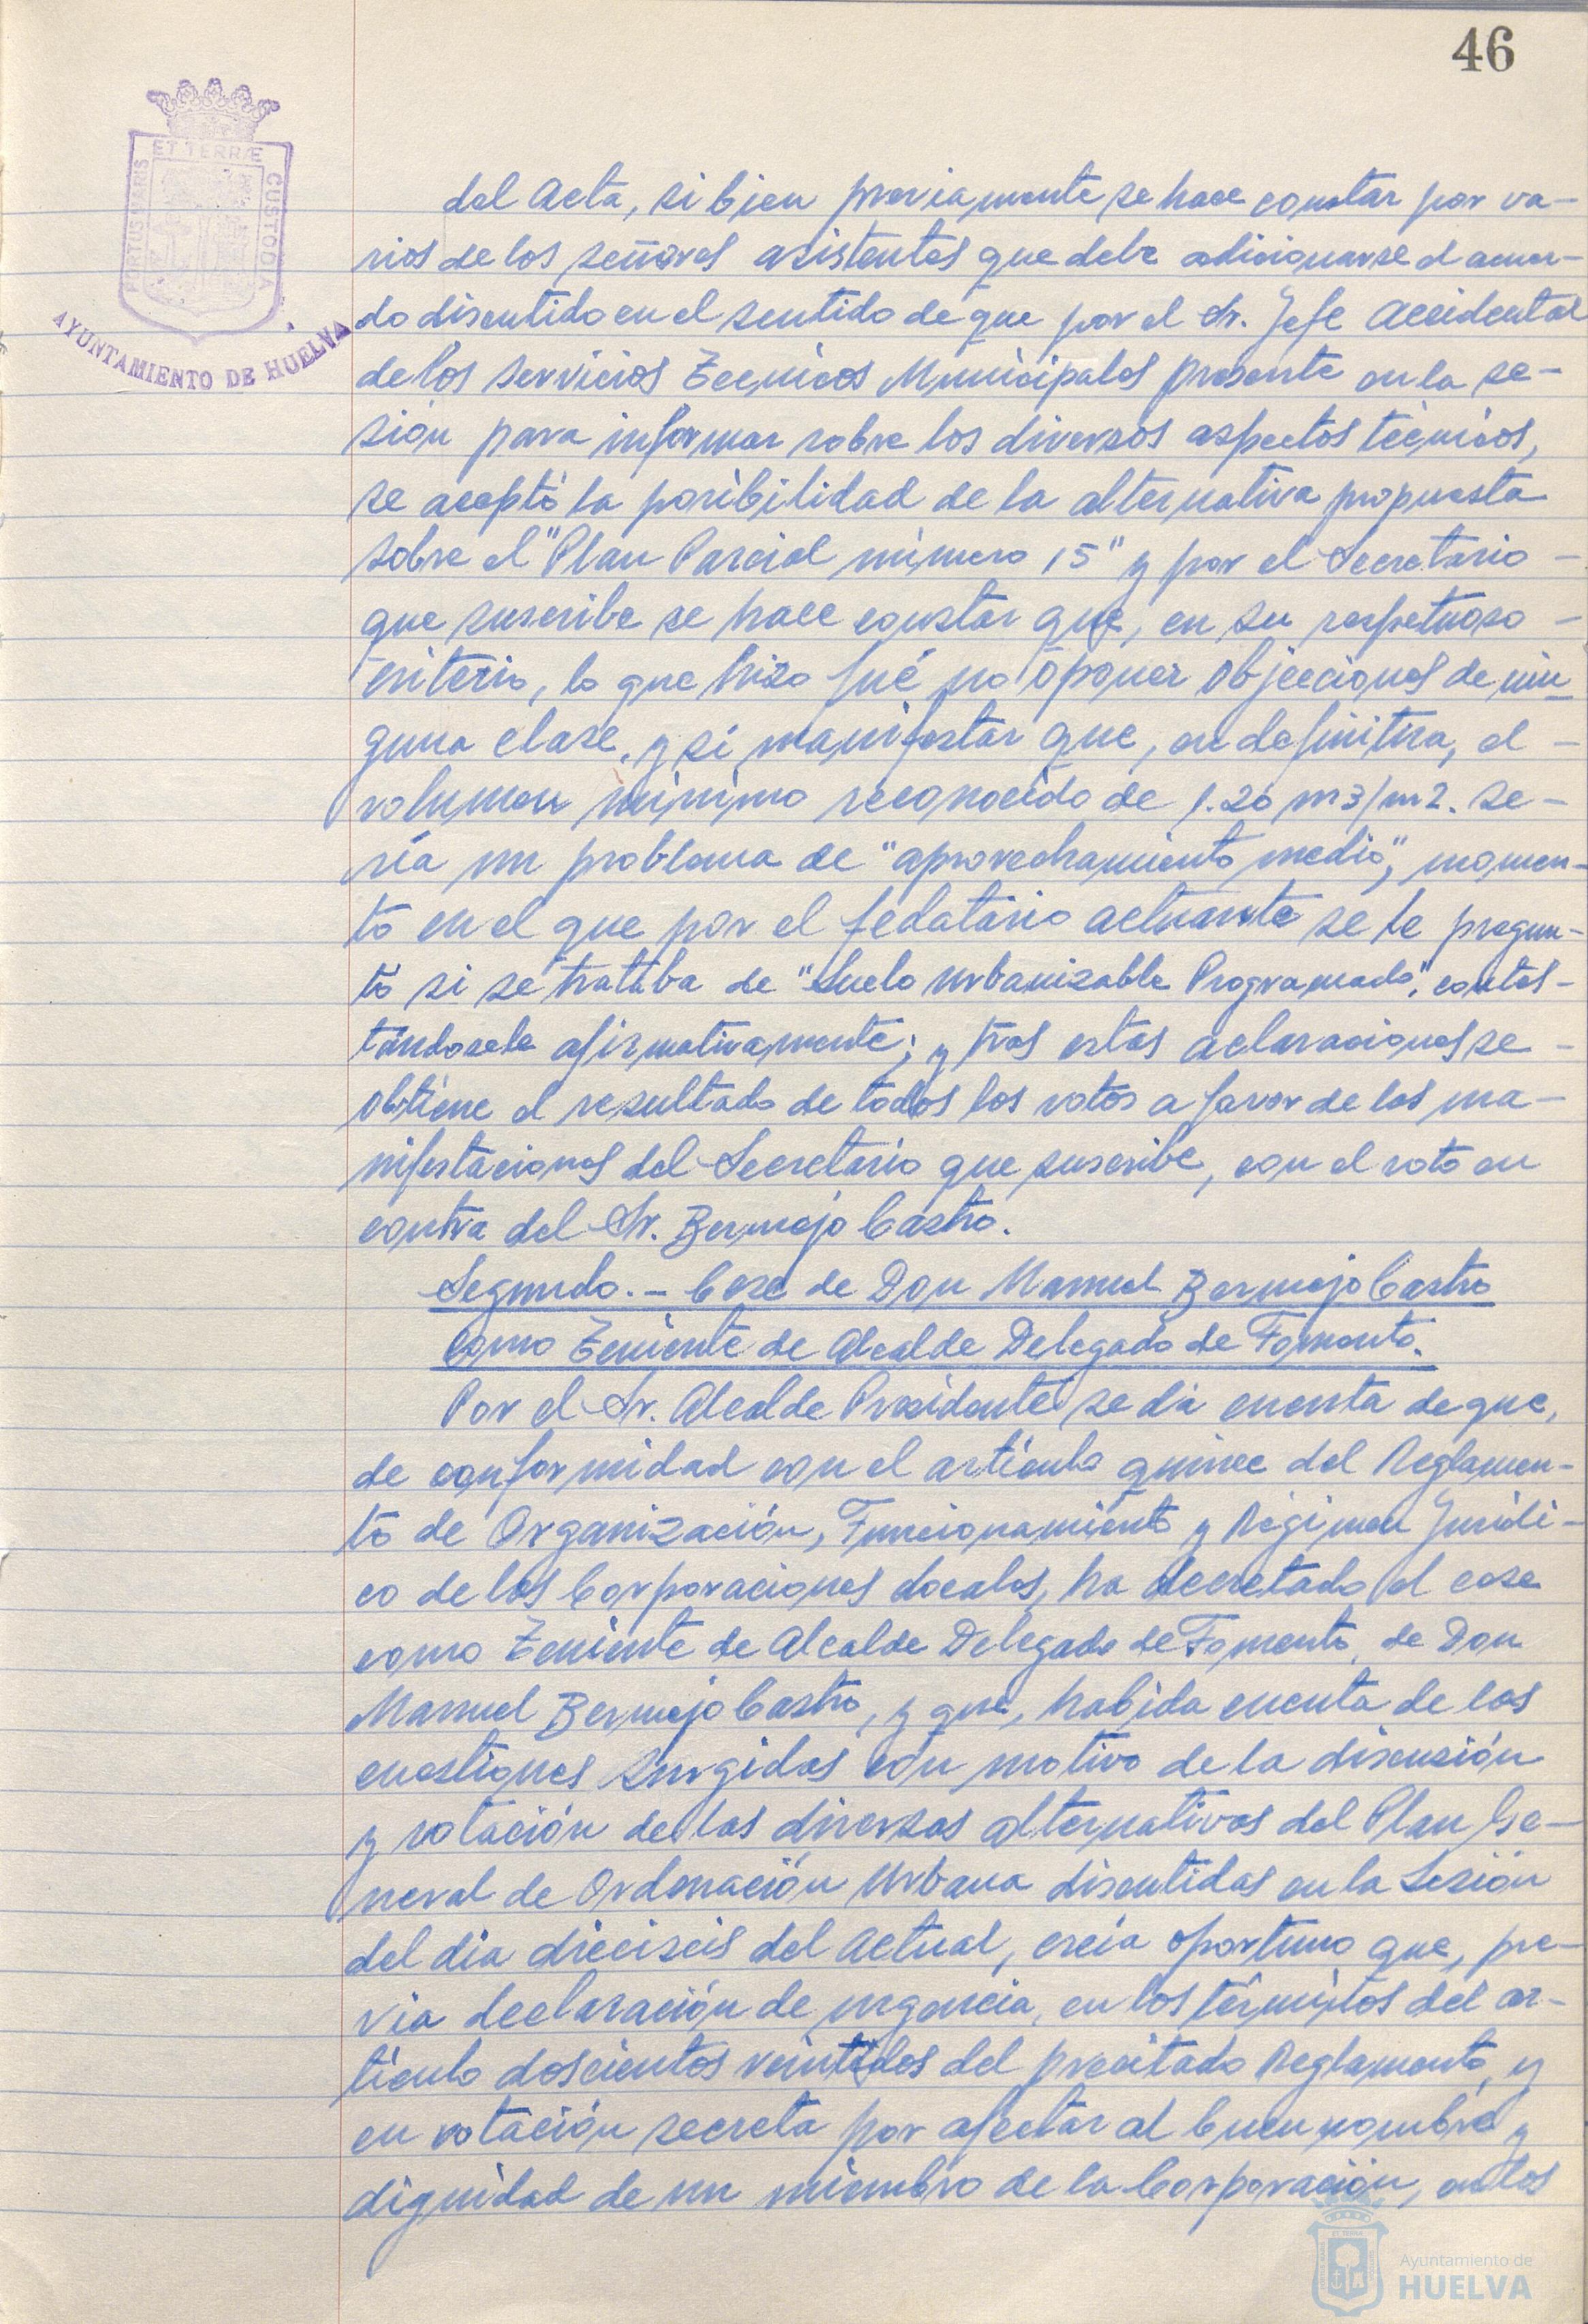 46
PORTUS MARIS
ET TERRÆ
CUSTODIA
AYUNTAMIENTO DE HUELVA
del Acta, si bien previamente se hace constar por va-
rios de los señores asistentes que debe adicionarse el acuer-
do discutido en el sentido de que por el Sr. Jefe Accidental
de los Servicios Técnicos Municipales presente en la se-
sión para informar sobre los diversos aspectos técnicos,
se aceptó la posibilidad de la alternativa propuesta
sobre el "Plan Parcial número 15" y por el Secretario -
que suscribe se hace constar que, en su respetuoso -
criterio, lo que hizo fué no oponer objecciones de nin-
guna clase, y sí manifestar que, en definitiva, el -
volumen mínimo reconocido de 1.20 m3/m2. se-
ría un problema de "aprovechamiento medio", momen-
to en el que por el fedatario actuante se le pregun-
tó si se trataba de "Suelo Urbanizable Programado", contes-
tándosele afirmativamente; y tras estas aclaraciones se -
obtiene el resultado de todos los votos a favor de las ma-
nifestaciones del Secretario que suscribe, con el voto en
contra del Sr. Bermejo Castro.
Segundo.- Cese de Don Manuel Bermejo Castro
como Teniente de Alcalde Delegado de Fomento.
Por el Sr. Alcalde Presidente se da cuenta de que,
de conformidad con el artículo quince del Reglamen-
to de Organización, Funcionamiento y Régimen Jurídi-
co de las Corporaciones Locales, ha decretado el cese
como Teniente de Alcalde Delegado de Fomento, de Don
Manuel Bermejo Castro, y que, habida cuenta de las
cuestiones surgidas con motivo de la discusión
y votación de las diversas alternativas del Plan Ge-
neral de Ordenación Urbana discutidas en la Sesión
del día dieciseis del actual, creía oportuno que, pre-
via declaración de urgencia, en los términos del ar-
tículo doscientos veintidos del precitado Reglamento, y
en votación secreta por afectar al buen nombre y
dignidad de un miembro de la Corporación, en los
Ayuntamiento de
HUELVA